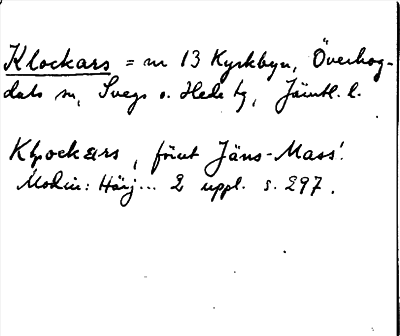 Klockars = nr 13 Kyrkbyn, Överhog-
dals sn, Svegs o. Hede tg, Jämtl. l.
Klockars, förut Jäns-Mass'.
Modin: Härj... 2 uppl. s. 297.